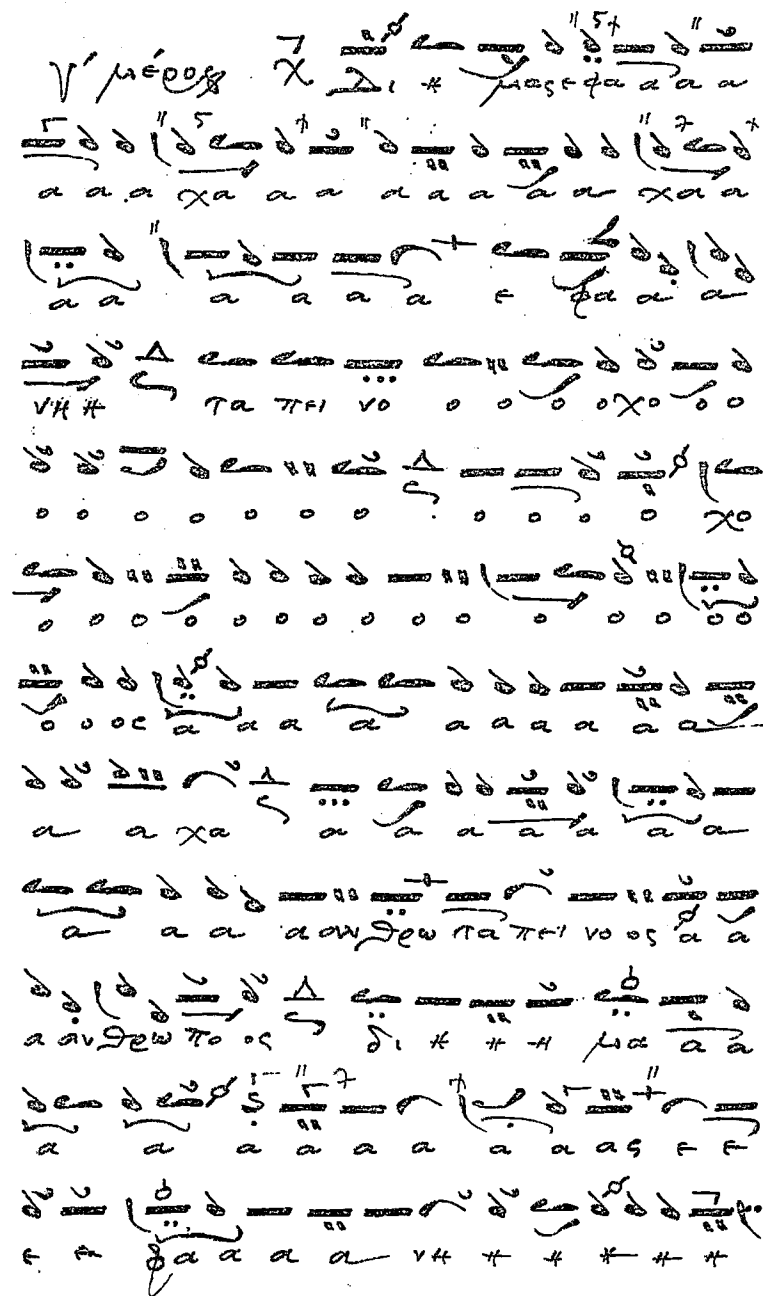 γ´ μέρος χ Δι η μας ε φα α α α
α α α χα α α α α α α α χα α α
α α α α α α ε φα α α
νη η πα πει νο ο ο ο ο χο ο ο
ο ο ο ο ο ο ο ο ο ο ο χο
ο ο ο ο ο ο ο ο ο ο ο ο ο ο
ο ο ος α α α α α α α α α α
α α χα α α α α α α α
α α α α αν θρω πα πει νο ος α α
α αν θρω πο ος δι η η η μα α α
α α α α α α α α ας ε ε
ε ε φα α α α νη η η η η η